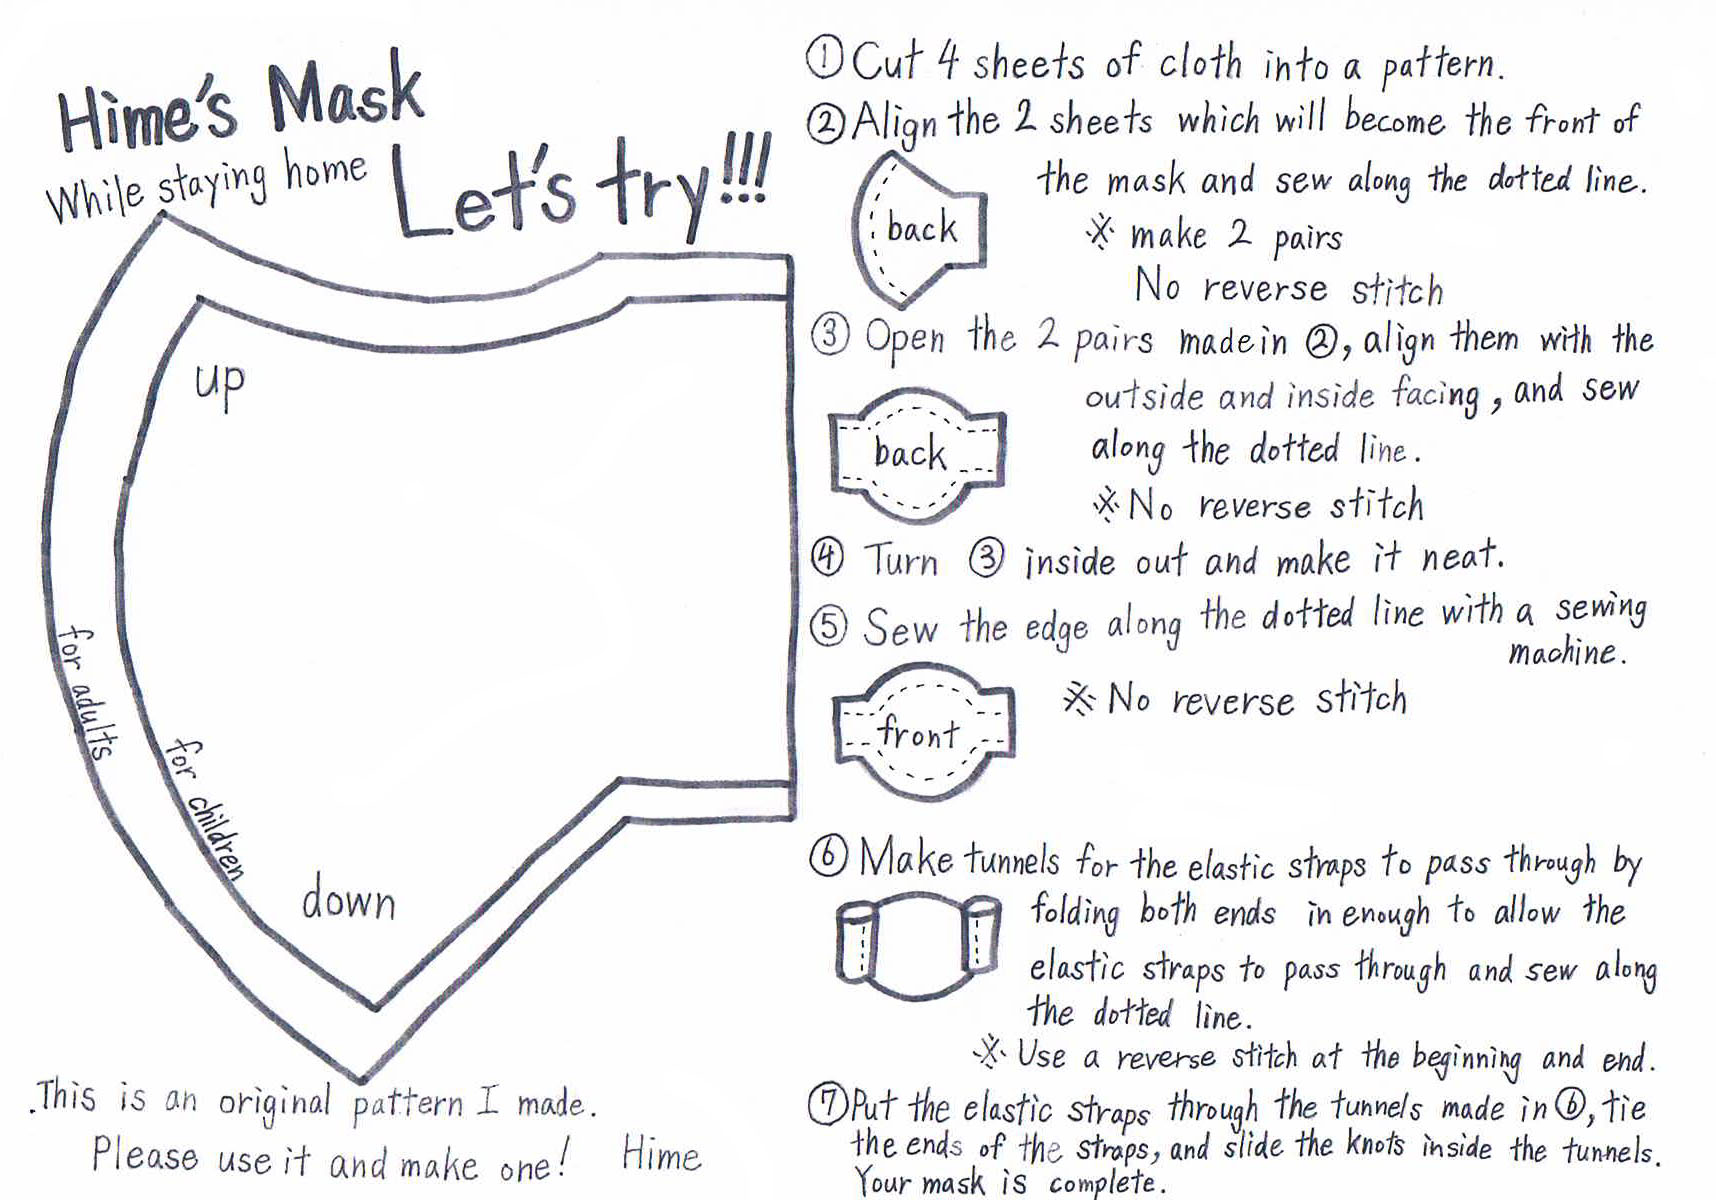 Hime's Mask
While staying home
Let's try!!!
up
for adults
for children
down
.This is an original pattern I made.
Please use it and make one! Hime
① Cut 4 sheets of cloth into a pattern.
② Align the 2 sheets which will become the front of
the mask and sew along the dotted line.
back
※ make 2 pairs
No reverse stitch
③ Open the 2 pairs made in ②, align them with the
outside and inside facing, and sew
back
along the dotted line.
※ No reverse stitch
④ Turn ③ inside out and make it neat.
⑤ Sew the edge along the dotted line with a sewing
machine.
※ No reverse stitch
front
⑥ Make tunnels for the elastic straps to pass through by
folding both ends in enough to allow the
elastic straps to pass through and sew along
the dotted line.
※ Use a reverse stitch at the beginning and end.
⑦ Put the elastic straps through the tunnels made in ⑥, tie
the ends of the straps, and slide the knots inside the tunnels.
Your mask is complete.